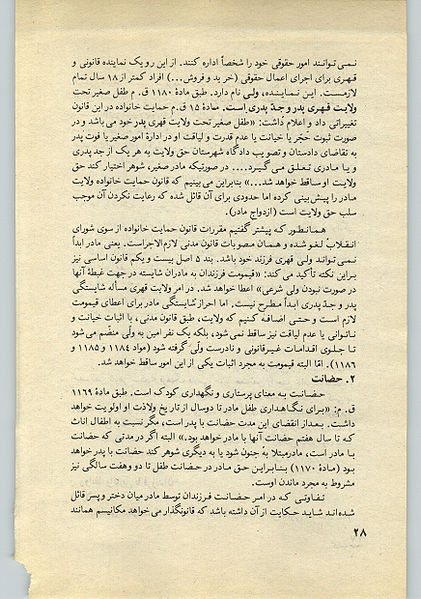 نمی‌توانند امور حقوقی خود را شخصاً اداره کنند. از این رو یک نماینده قانونی و
قهری برای اجرای اعمال حقوقی (خرید و فروش...) افراد کمتر از ۱۸ سال تمام
لازمست. این نماینده، ولی نام دارد. طبق مادهٔ ۱۱۸۰ ق. م طفل صغیر تحت
ولایت قهری پدر و جد پدری است. مادهٔ ۱۵ ق. م حمایت خانواده در این قانون
تغییراتی داد و اعلام داشت: «طفل صغیر تحت ولایت قهری پدر خود می باشد و در
صورت ثبوت حجر یا خیانت یا عدم قدرت و لیاقت او در ادارهٔ امور صغیر یا فوت پدر
به تقاضای دادستان و تصویب دادگاه شهرستان حق ولایت به هر یک از جد پدری
و یا مادری تعلق می گیرد.... در صورتیکه مادر صغیر، شوهر اختیار کند حق
ولایت او ساقط خواهد شد...» بنابراین می بینیم که قانون حمایت خانواده ولایت
مادر را پیش بینی کرده اما حدودی برای آن قائل شده که رعایت نکردن آن موجب
سلب حق ولایت است (ازدواج مادر).
همانطور که پیشتر گفتیم مقررات قانون حمایت خانواده از سوی شورای
انقلاب لغو شده و همان مصوبات قانون مدنی لازم الاجراست. یعنی مادر ابداً
نمی تواند ولی قهری فرزند خود باشد. بند ۵ اصل بیست و یکم قانون اساسی نیز
بر این نکته تأکید می کند: «قیمومت فرزندان به مادران شایسته در جهت غبطهٔ آنها
در صورت نبودن ولی شرعی» اعطا خواهد شد. در امر ولایت قهری مسأله شایستگی
پدر و جد پدری ابداً مطرح نیست. اما احراز شایستگی مادر برای اعطای قیمومت
لازم است و حتی اضافه کنیم که ولایت، طبق قانون مدنی، با اثبات خیانت و
ناتوانی یا عدم لیاقت نیز ساقط نمی شود، بلکه یک نفر امین به ولی منضم می شود
تا جلوی اقدامات غیرقانونی و نادرست ولی گرفته شود (مواد ۱۱۸۴ و ۱۱۸۵ و
۱۱۸۶). اما البته قیمومت به مجرد اثبات یکی از این امور ساقط خواهد شد.
۲. حضانت
حضانت به معنای پرستاری و نگهداری کودک است. طبق مادهٔ ۱۱۶۹
ق. م: «برای نگاهداری طفل مادر تا دو سال از تاریخ ولادت او اولویت خواهد
داشت. بعد از انقضای این مدت حضانت با پدر است، مگر نسبت به اطفال اناث
که تا سال هفتم حضانت آنها با مادر خواهد بود.» البته اگر در مدتی که حضانت
با مادر است، مادر مبتلا به جنون شود یا به دیگری شوهر کند حضانت با پدر خواهد
بود (مادهٔ ۱۱۷۰) بنابراین حق مادر در حضانت طفل تا دو وهفت سالگی نیز
مشروط به مجرد ماندن اوست.
تفاوتی که در امر حضانت فرزندان توسط مادر میان دختر و پسر قائل
شده اند شاید حکایت از آن داشته باشد که قانونگذار می خواهد مکانیسم همانند
۲۸